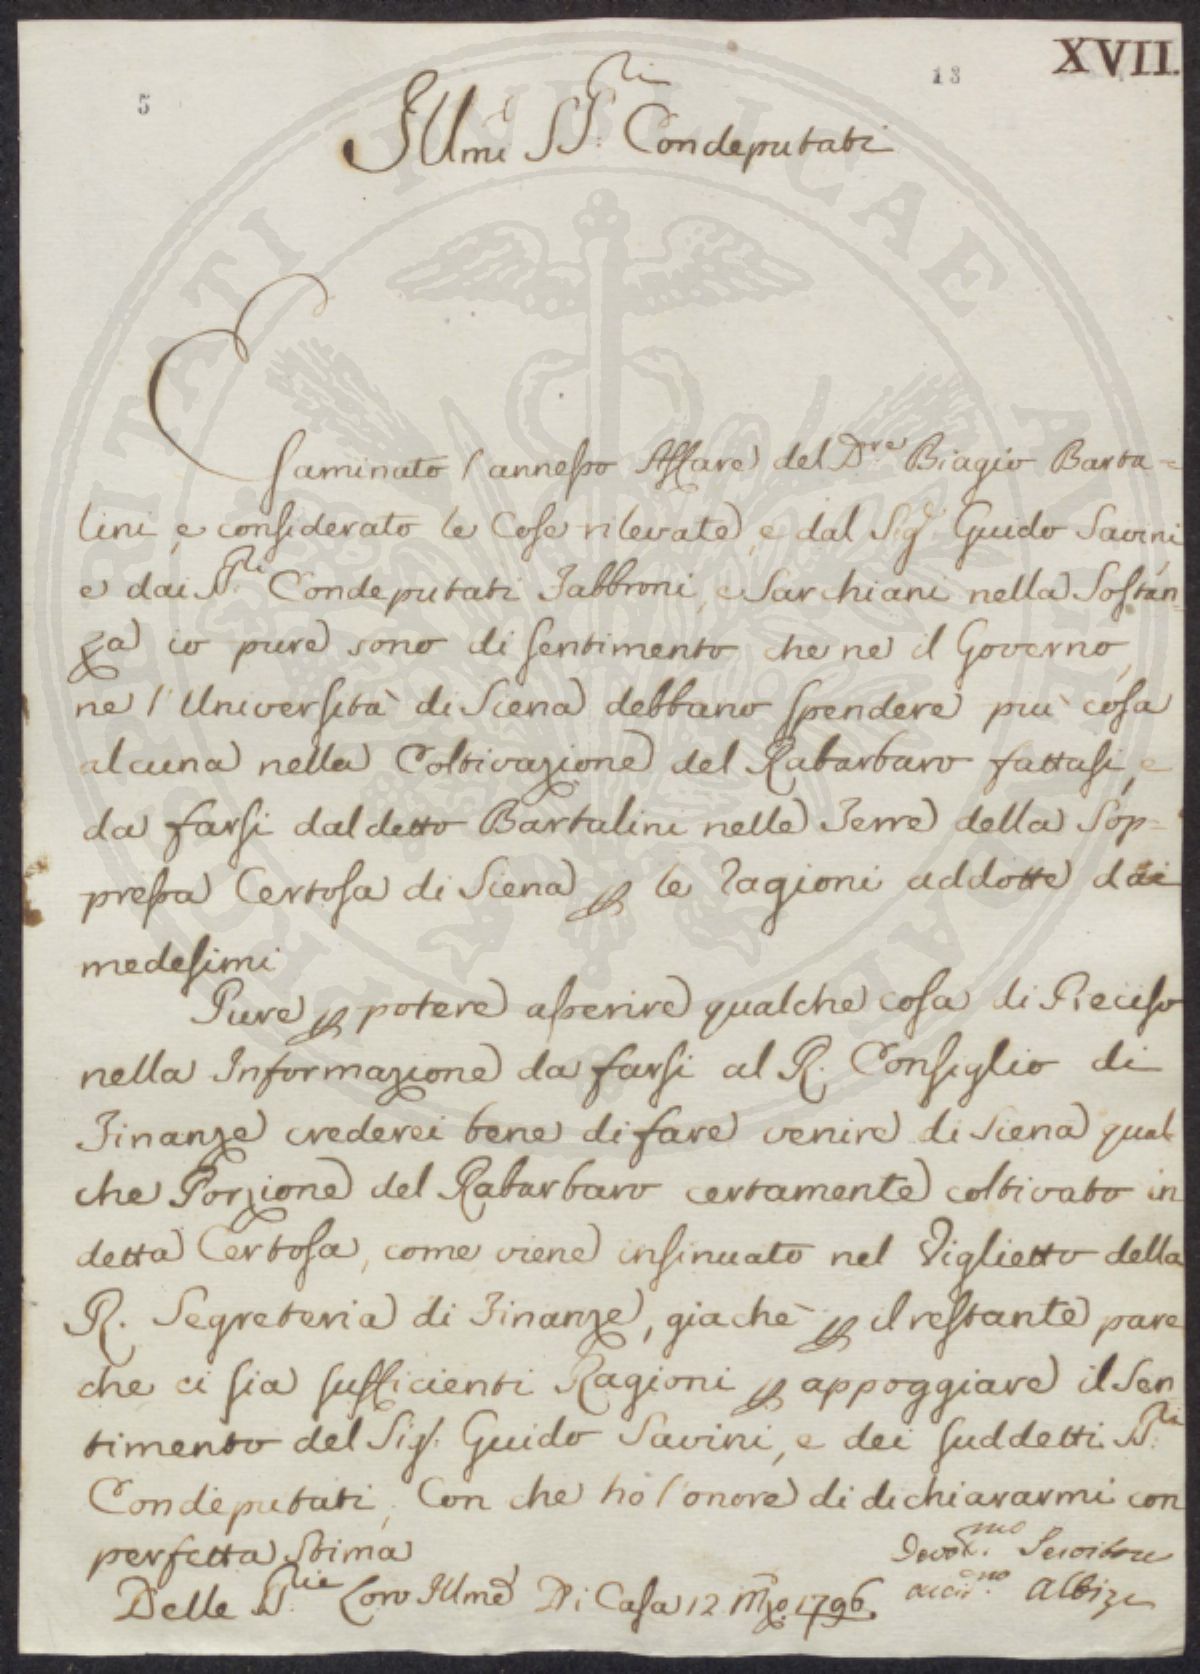 XVII.
13
5
Illmi SS.ri Condeputati
Esaminato l'annesso Affare del D.re Biagio Barta=
lini, e considerato le Cose rilevate, e dal Sig.r Guido Savini
e dai SS.ri Condeputati Fabbroni, e Sarchiani nella Sostan=
za io pure sono di sentimento che ne il Governo,
ne l'Università di Siena debbano spendere più cosa
alcuna nella Coltivazione del Rabarbaro fattasi, e
da farsi dal detto Bartalini nelle Terre della Sop=
pressa Certosa di Siena p le ragioni addotte dai
medesimi
Pure p potere asserire qualche cosa di Preciso
nella Informazione da farsi al R. Consiglio di
Finanze crederei bene di fare venire di Siena qual
che Porzione del Rabarbaro certamente coltivato in
detta Certosa, come viene insinuato nel Viglietto della
R. Segreteria di Finanze, giachè p il restante pare
che ci sia sufficienti Ragioni p appoggiare il Sen
timento del Sig.r Guido Savini, e dei suddetti SS.ri
Condeputati, Con che ho l'onore di dichiararmi con
perfetta stima
Delle SS.rie Loro Illme Di Casa 12 Mzo 1796.
Devot.mo Servitore
Albizi